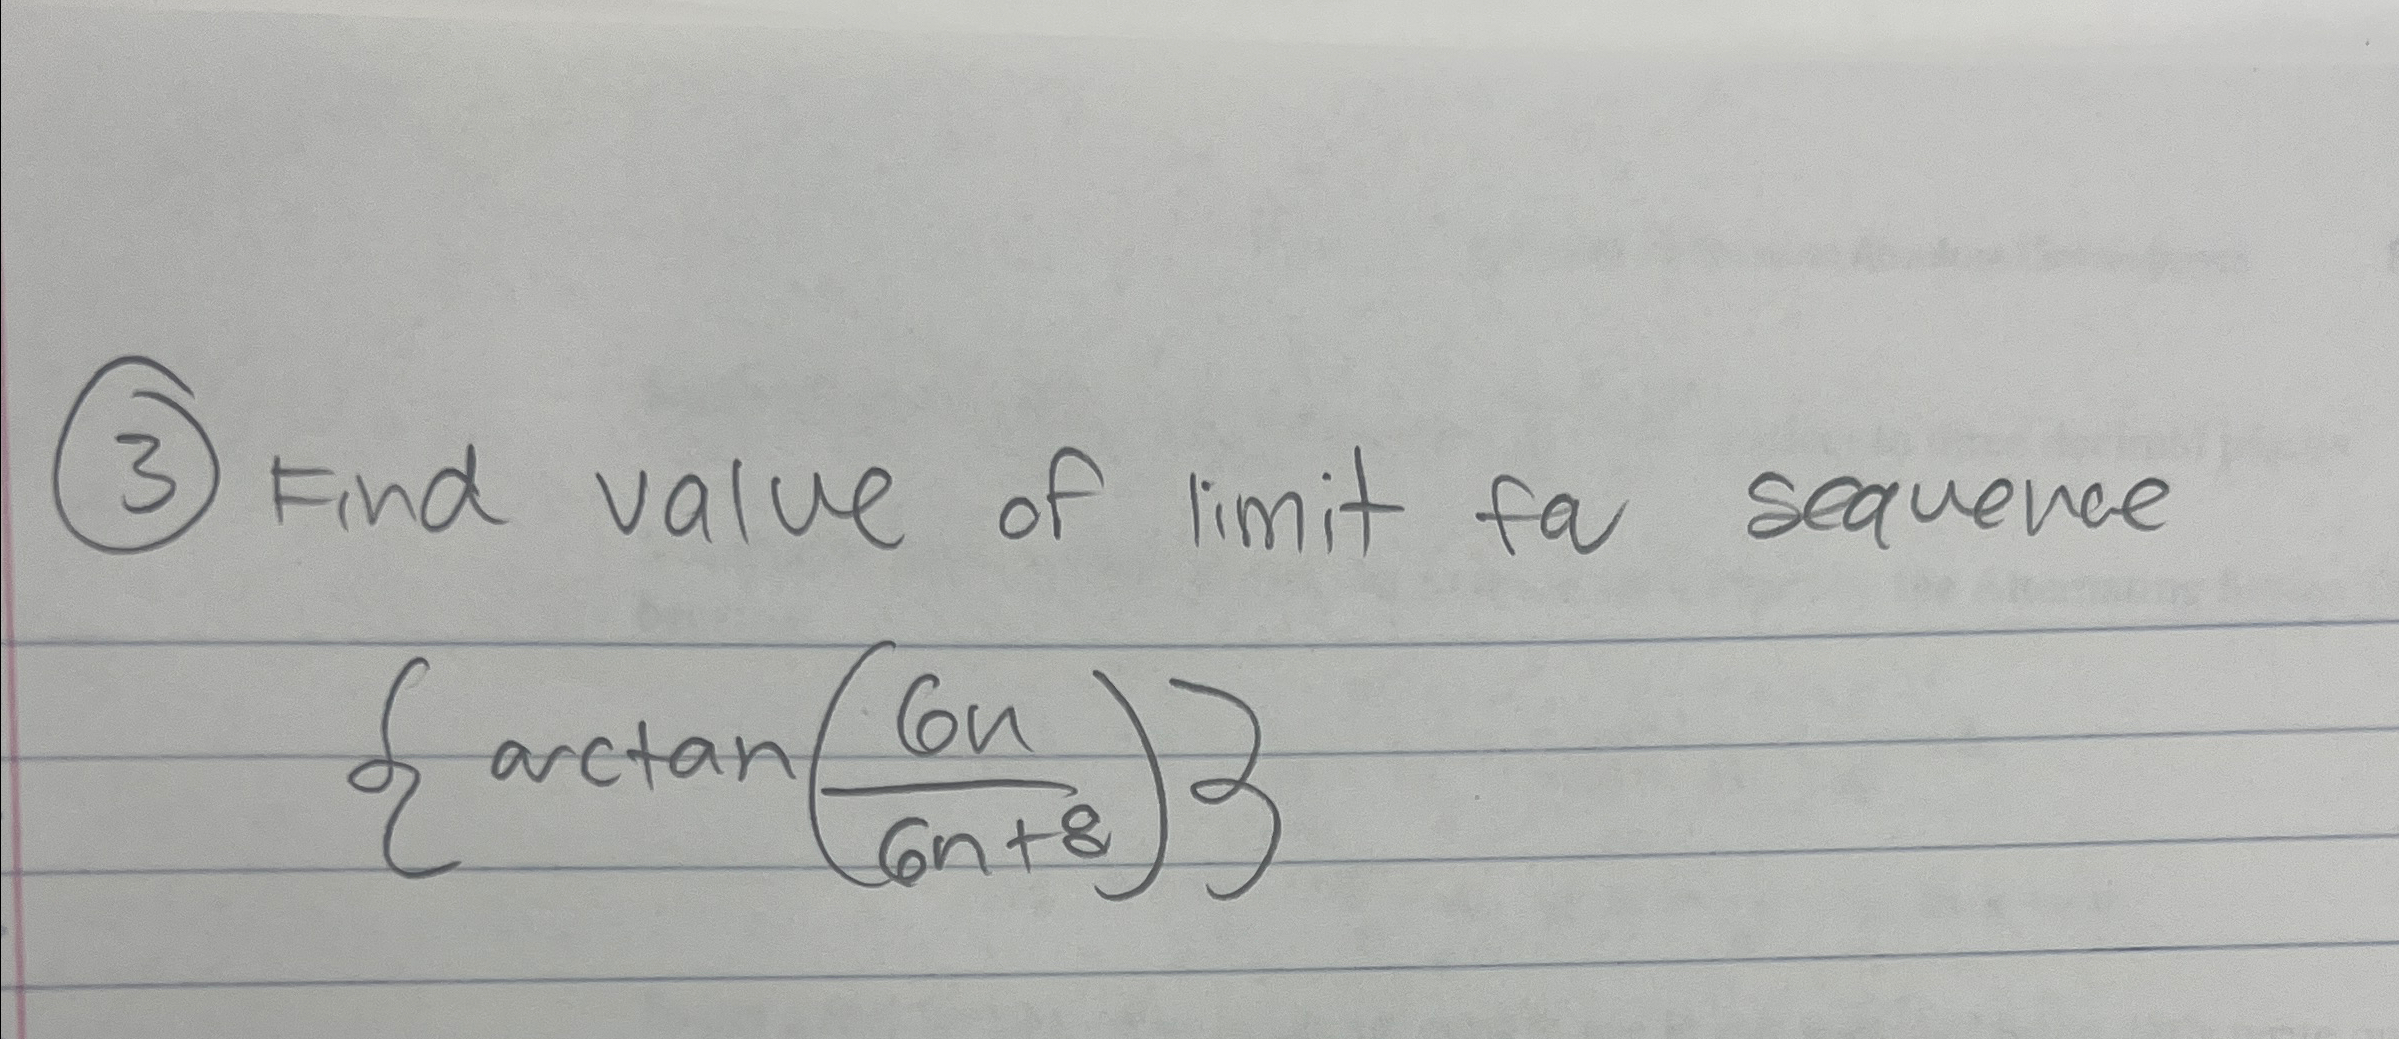 ③ Find value of limit for sequence
{ arctan( 6n / 6n+8 ) }